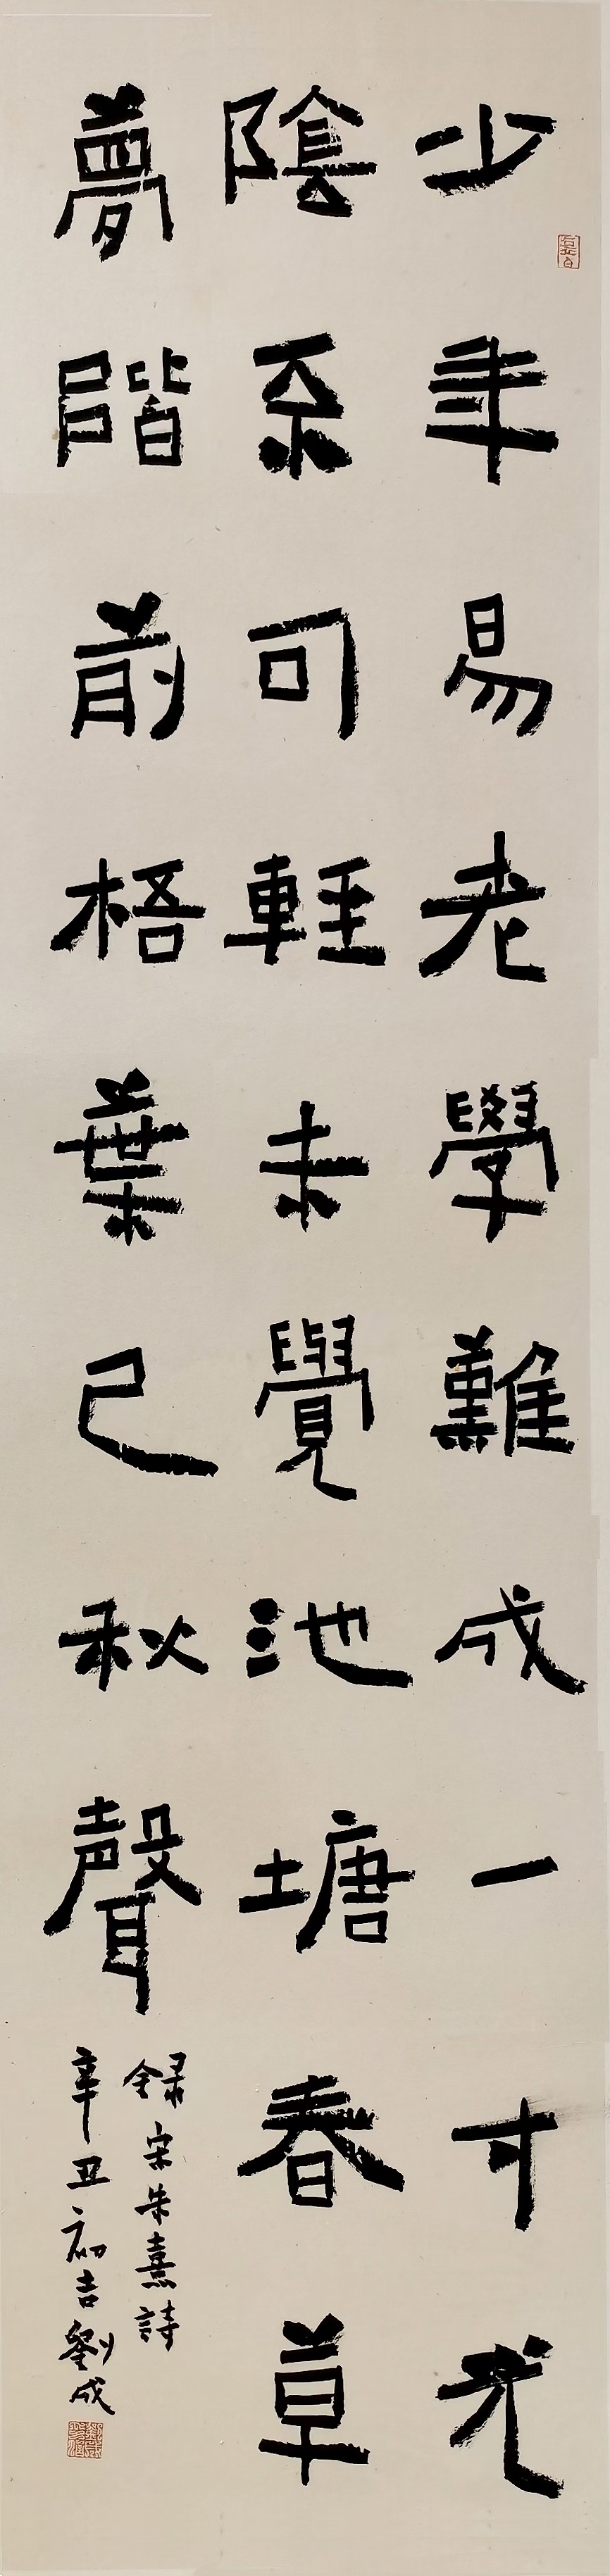 少年易老學難成一寸光
陰不可輕未覺池塘春草
夢階前梧葉已秋聲
錄宋朱熹詩
辛丑初吉劉成